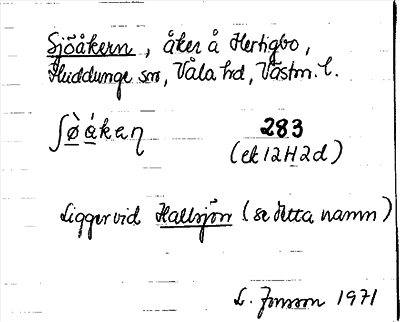 Sjöåkern, åker å Hertigbo,
Huddunge sn, Våla hd, Västm. l.
ʃø̀ákaɳ 283
(ek 12H2d)
Ligger vid Hallsjön (se detta namn)
L. Jonsson 1971